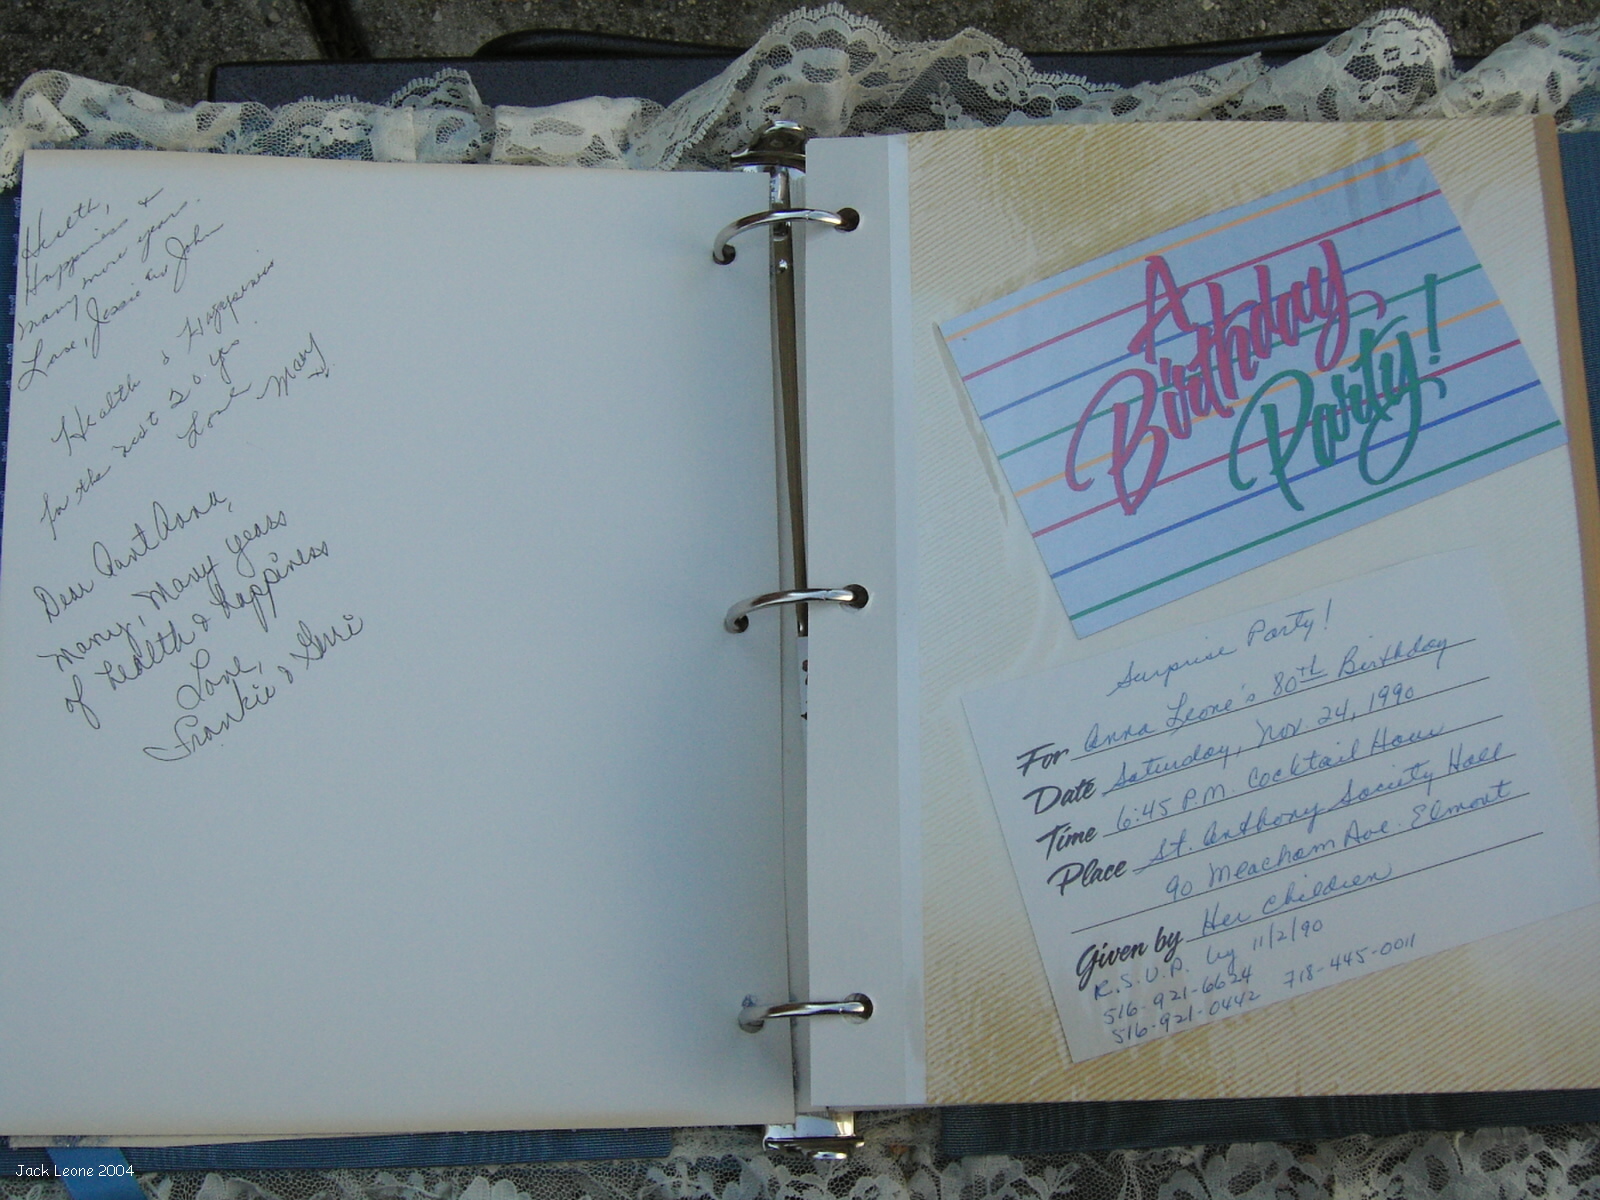 Health,
Happiness &
many more years.
Love, Jessie and John
Health & Happiness
for the next 20 yrs
Love Mary
Dear Aunt Anna,
Many, Many years
of health & happiness
Love,
Frankie & Gerri
A
Birthday
Party!
Surprise Party!
For Anna Leone's 80th Birthday
Date Saturday, Nov. 24, 1990
Time 6:45 P.M. Cocktail Hour
Place St. Anthony Society Hall
90 Meacham Ave. Elmont
Given by Her children
R.S.V.P. by 11/2/90
516-921-6624 718-445-0011
516-921-0442
Jack Leone 2004